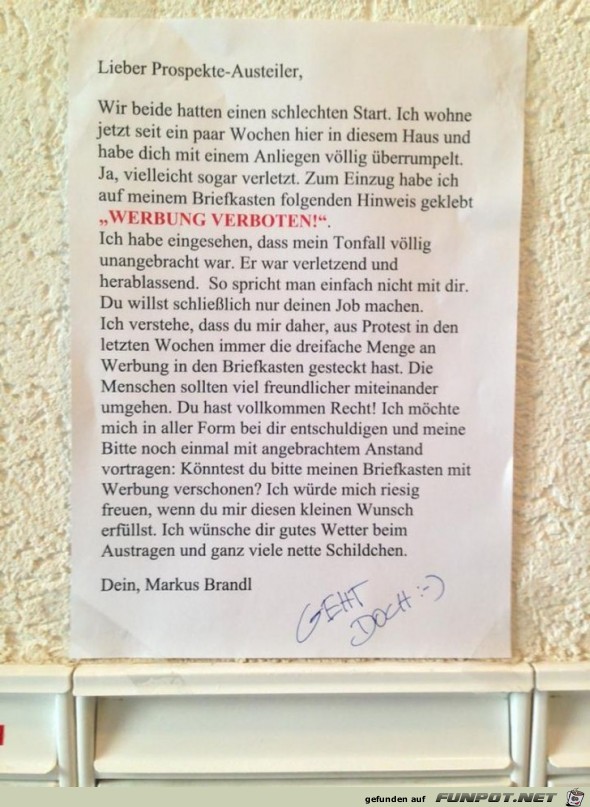 Lieber Prospekte-Austeiler,
Wir beide hatten einen schlechten Start. Ich wohne
jetzt seit ein paar Wochen hier in diesem Haus und
habe dich mit einem Anliegen völlig überrumpelt.
Ja, vielleicht sogar verletzt. Zum Einzug habe ich
auf meinem Briefkasten folgenden Hinweis geklebt
„WERBUNG VERBOTEN!“.
Ich habe eingesehen, dass mein Tonfall völlig
unangebracht war. Er war verletzend und
herablassend. So spricht man einfach nicht mit dir.
Du willst schließlich nur deinen Job machen.
Ich verstehe, dass du mir daher, aus Protest in den
letzten Wochen immer die dreifache Menge an
Werbung in den Briefkasten gesteckt hast. Die
Menschen sollten viel freundlicher miteinander
umgehen. Du hast vollkommen Recht! Ich möchte
mich in aller Form bei dir entschuldigen und meine
Bitte noch einmal mit angebrachtem Anstand
vortragen: Könntest du bitte meinen Briefkasten mit
Werbung verschonen? Ich würde mich riesig
freuen, wenn du mir diesen kleinen Wunsch
erfüllst. Ich wünsche dir gutes Wetter beim
Austragen und ganz viele nette Schildchen.
Dein, Markus Brandl
GEHT
DOCH :-)
gefunden auf FUNPOT.NET